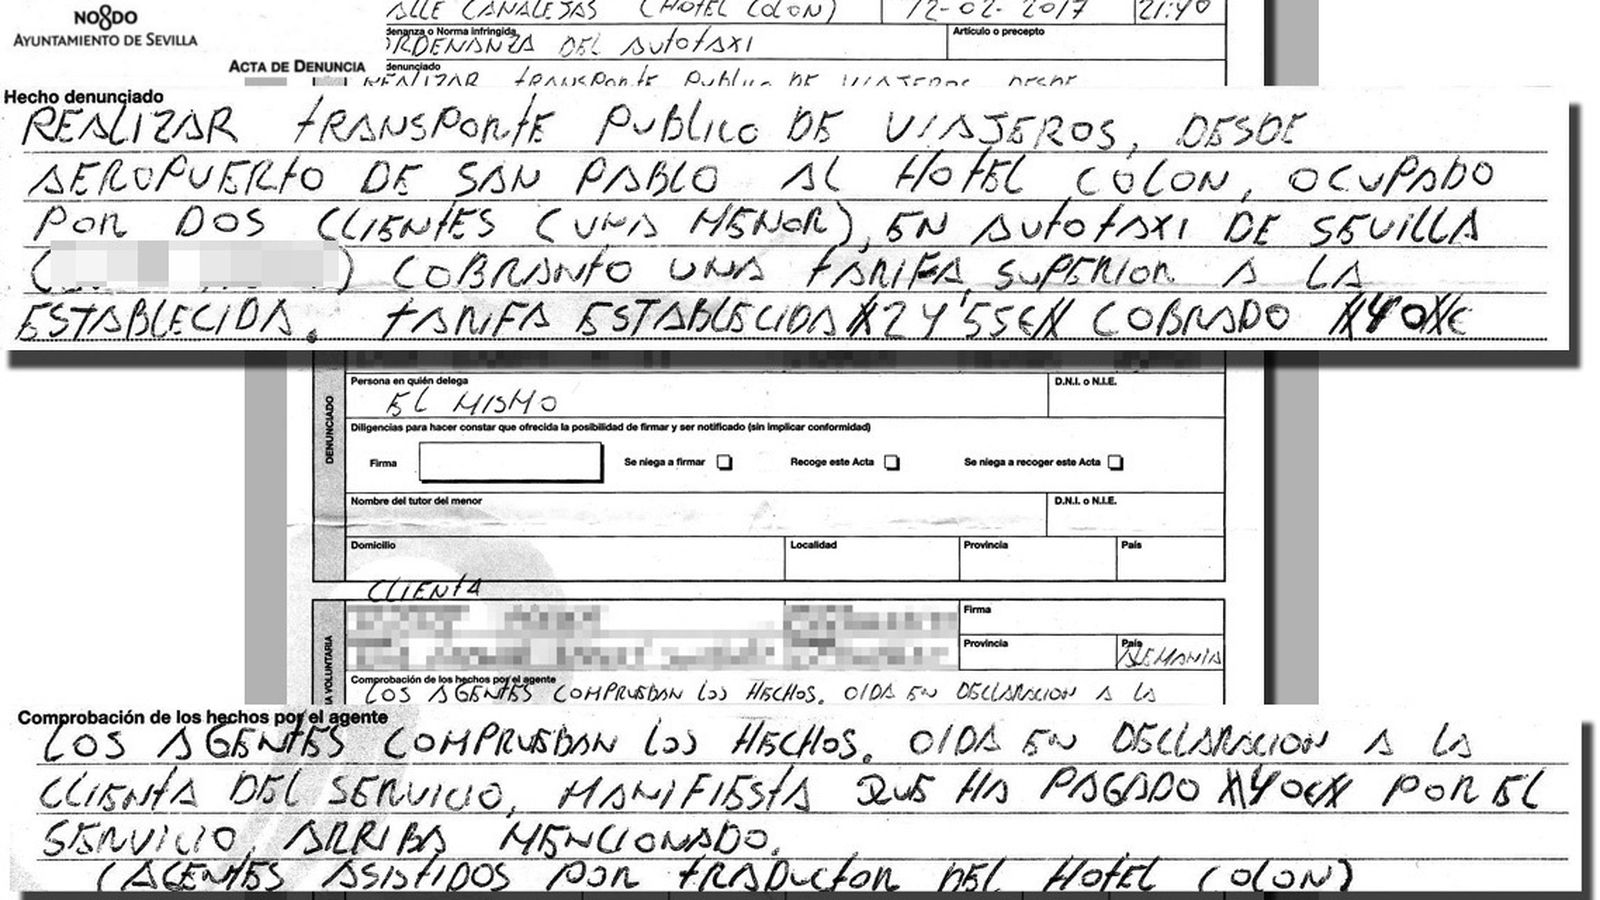 NO8DO
AYUNTAMIENTO DE SEVILLA
ACTA DE DENUNCIA
CALLE CANALEJAS (HOTEL COLON) 12-02-2017 21:40
denanza o Norma infringida
Artículo o precepto
ORDENANZA DEL AUTOTAXI
denunciado
REALIZAR TRANSPORTE PUBLICO DE VIAJEROS DESDE
Hecho denunciado
REALIZAR TRANSPORTE PUBLICO DE VIAJEROS, DESDE
AEROPUERTO DE SAN PABLO AL HOTEL COLON, OCUPADO
POR DOS CLIENTES (UNA MENOR), EN AUTOTAXI DE SEVILLA
( ) COBRANTO UNA TARIFA SUPERIOR A LA
ESTABLECIDA. TARIFA ESTABLECIDA XX24'55€XX COBRADO XX40XX€
DENUNCIADO
Persona en quién delega
D.N.I. o N.I.E.
EL MISMO
Diligencias para hacer constar que ofrecida la posibilidad de firmar y ser notificado (sin implicar conformidad)
Firma
Se niega a firmar
Recoge este Acta
Se niega a recoger este Acta
Nombre del tutor del menor
D.N.I. o N.I.E.
Domicilio
Localidad
Provincia
País
CLIENTA
Firma
Provincia
País
ALEMANIA
A VOLUNTARIA
Comprobación de los hechos por el agente
LOS AGENTES COMPRUEBAN LOS HECHOS. OIDA EN DECLARACION A LA
Comprobación de los hechos por el agente
LOS AGENTES COMPRUEBAN LOS HECHOS. OIDA EN DECLARACION A LA
CLIENTA DEL SERVICIO, MANIFIESTA QUE HA PAGADO XX40€XX POR EL
SERVICIO ARRIBA MENCIONADO.
(AGENTES ASISTIDOS POR TRADUCTOR DEL HOTEL COLON)